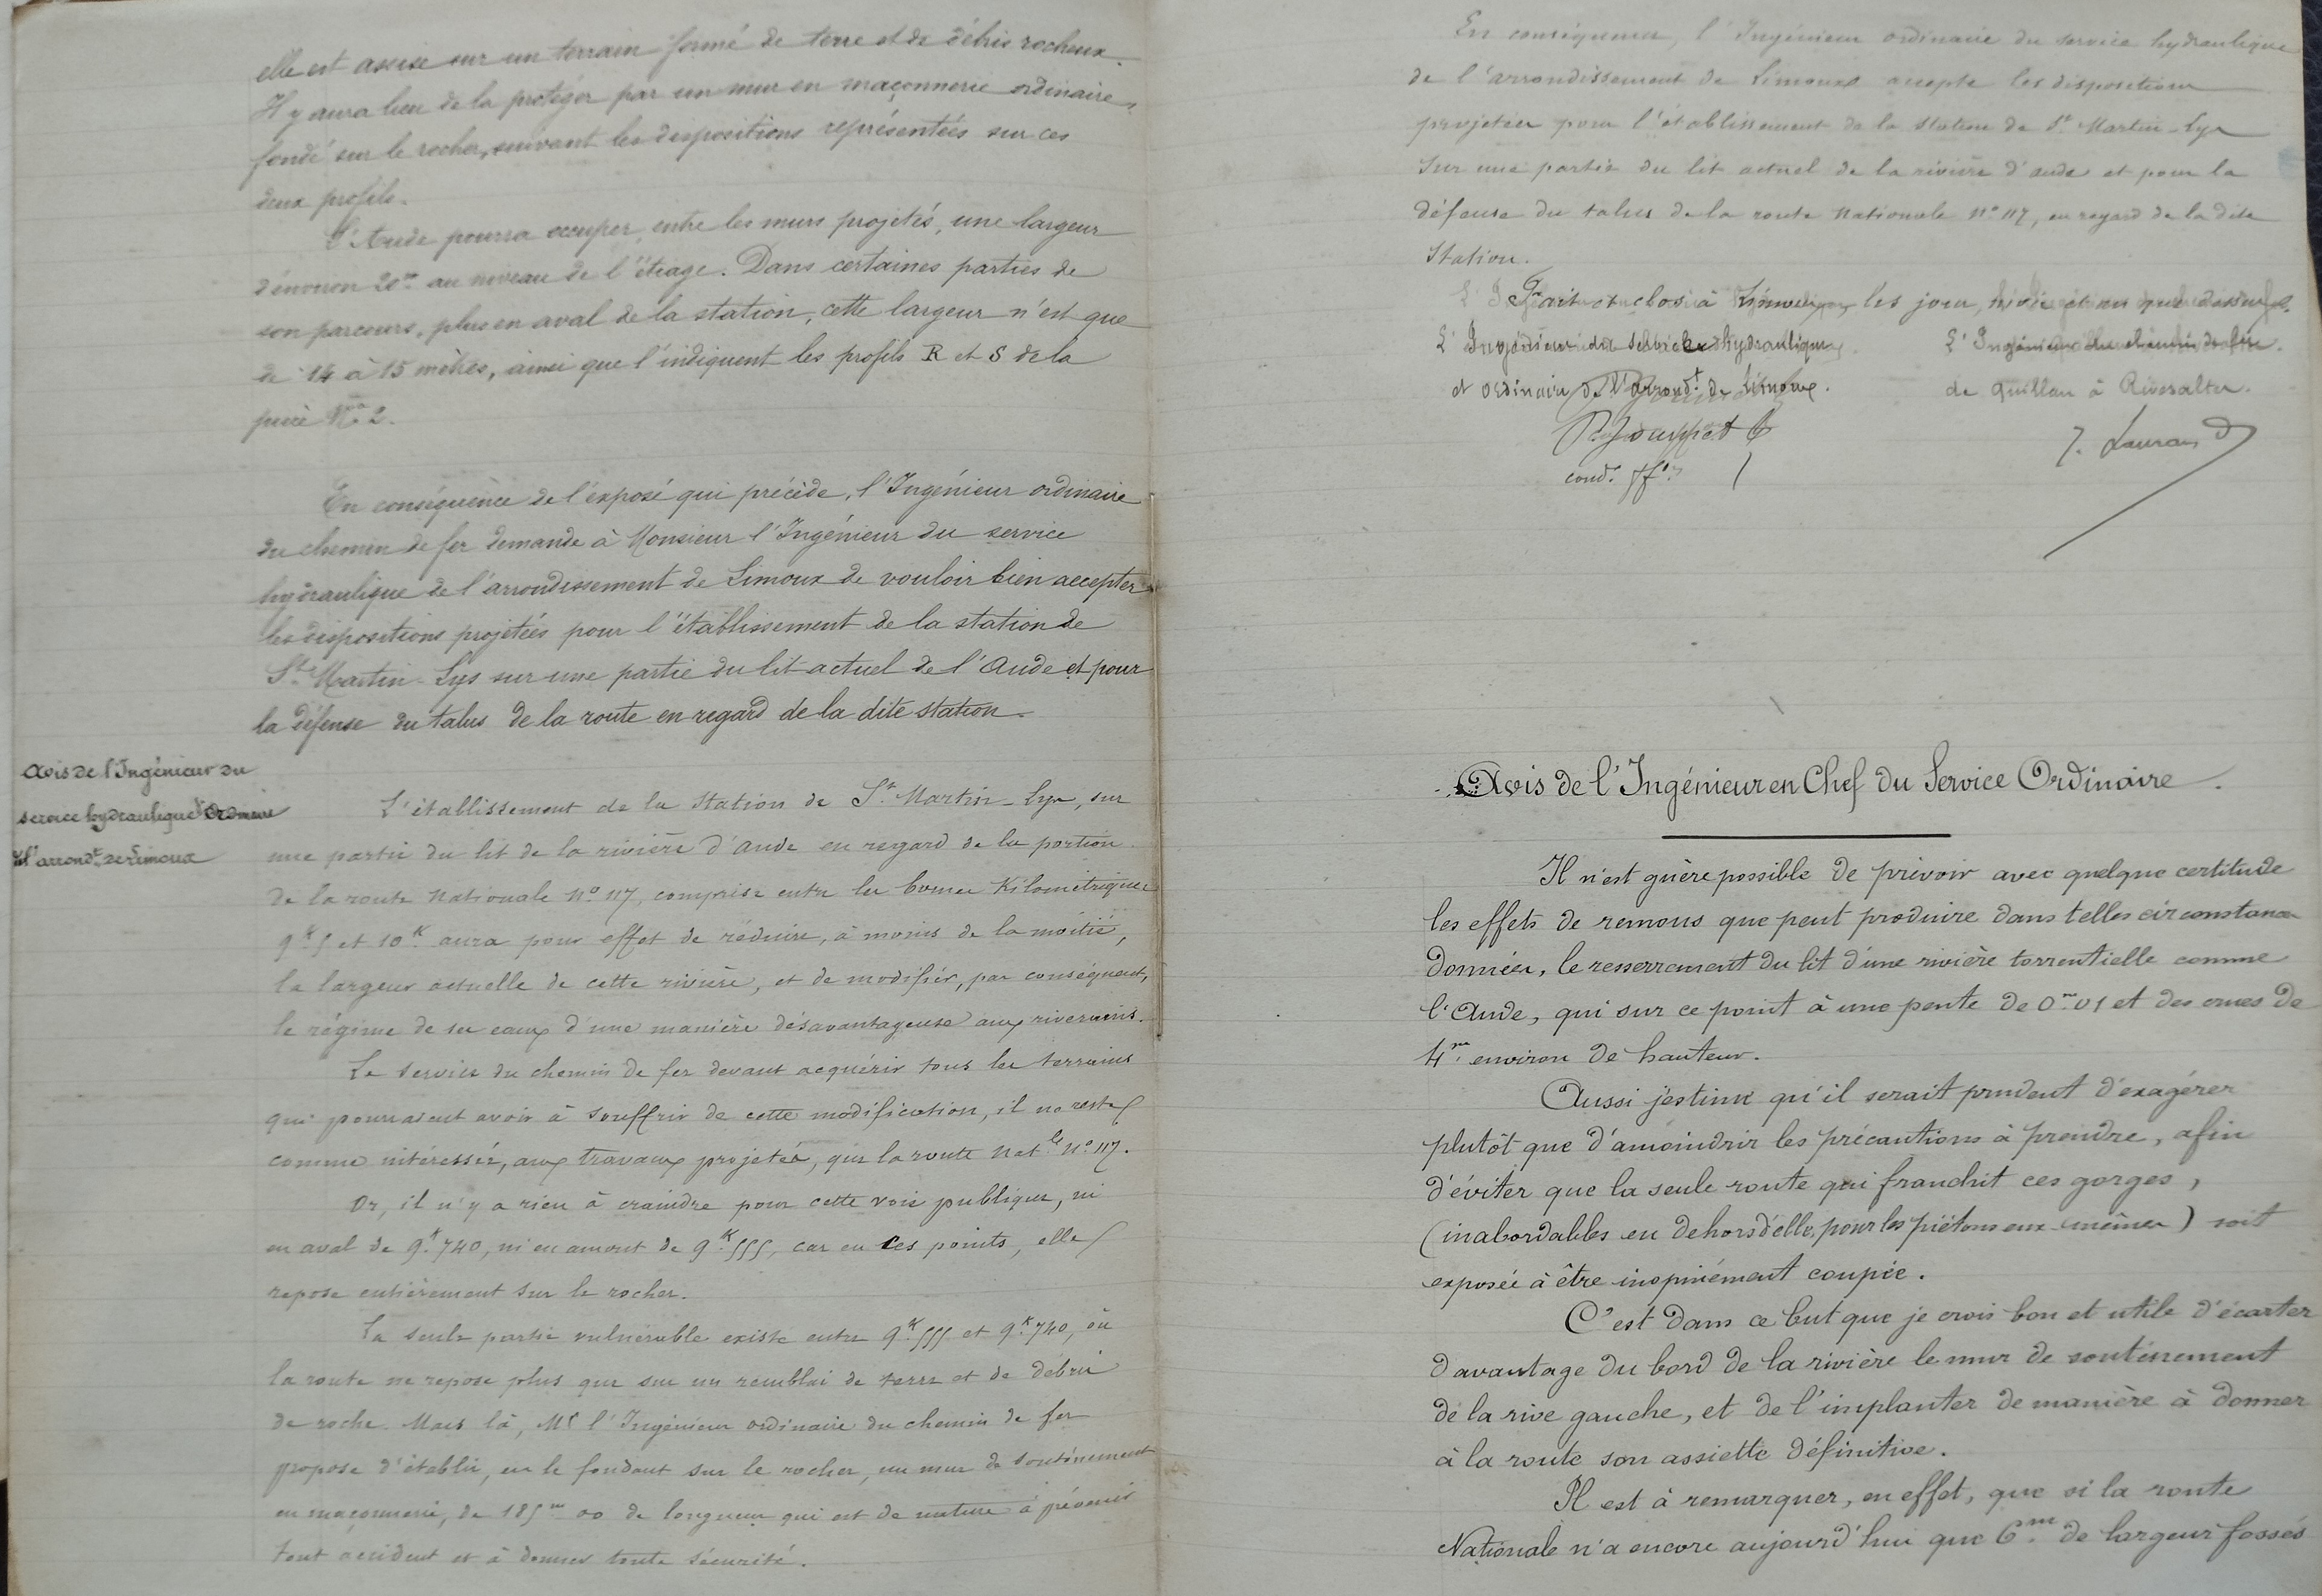 elle est assise sur un terrain formé de terre et de débris rocheux.
Il y aura lieu de la protéger par un mur en maçonnerie ordinaire,
fondé sur le rocher, suivant les dispositions représentées sur ces
deux profils.
L'Aude pourra occuper, entre les murs projetés, une largeur
d'environ 20m au niveau de l'étiage. Dans certaines parties de
son parcours, plus en aval de la station, cette largeur n'est que
de 14 à 15 mètres, ainsi que l'indiquent les profils R et S de la
pièce No 2.
En conséquence de l'exposé qui précède, l'Ingénieur ordinaire
du chemin de fer demande à Monsieur l'Ingénieur du service
hydraulique de l'arrondissement de Limoux de vouloir bien accepter
les dispositions projetées pour l'établissement de la station de
St Martin-Lys sur une partie du lit actuel de l'Aude et pour
la défense du talus de la route en regard de la dite station.
Avis de l'Ingénieur du
service hydraulique ordinaire
l'arrondt de Limoux
L'établissement de la Station de St Martin-Lys, sur
une partie du lit de la rivière d'Aude en regard de la portion
de la route Nationale No 117, comprise entre les bornes Kilométriques
9k5 et 10k aura pour effet de réduire, à moins de la moitié,
la largeur actuelle de cette rivière, et de modifier, par conséquent,
le régime de ses eaux d'une manière désavantageuse aux riverains.
Le service du chemin de fer devant acquérir tous les terrains
qui pourraient avoir à souffrir de cette modification, il ne reste
comme intéressée, aux travaux projetés, que la route Natle No 117.
Or, il n'y a rien à craindre pour cette voie publique, ni
en aval de 9k.740, ni en amont de 9k.555, car en ces points, elle
repose entièrement sur le rocher.
La seule partie vulnérable existe entre 9k.555 et 9k.740, où
la route ne repose plus que sur un remblai de terre et de débris
de roche. Mais là, Mr l'Ingénieur ordinaire du chemin de fer
propose d'établir, en le fondant sur le rocher, un mur de soutènement
en maçonnerie, de 185m.00 de longueur qui est de nature à prévenir
tout accident et à donner toute sécurité.
En conséquence, l'Ingénieur ordinaire du service hydraulique
de l'arrondissement de Limoux accepte les dispositions
projetées pour l'établissement de la station de St Martin-Lys
sur une partie du lit actuel de la rivière d'Aude et pour la
défense du talus de la route Nationale No 117, en regard de la dite
Station.
Fait et clos à les jour, et an que dessus
L'Ingénieur du service hydraulique
et ordinaire de l'arrondt de Limoux.
L'Ingénieur du chemin de fer
de Quillan à Rivesaltes.
condr ff
J. Lauran
Avis de l'Ingénieur en Chef du Service Ordinaire.
Il n'est guère possible de prévoir avec quelque certitude
les effets de remous que peut produire dans telles circonstances
données, le resserrement du lit d'une rivière torrentielle comme
l'Aude, qui sur ce point à une pente de 0m.01 et des crues de
4m. environ de hauteur.
Aussi j'estime qu'il serait prudent d'exagérer
plutôt que d'amoindrir les précautions à prendre, afin
d'éviter que la seule route qui franchit ces gorges,
(inabordables en dehors d'elle, pour les piétons eux-mêmes) soit
exposée à être inopinément coupée.
C'est dans ce but que je crois bon et utile d'écarter
davantage du bord de la rivière le mur de soutènement
de la rive gauche, et de l'implanter de manière à donner
à la route son assiette définitive.
Il est à remarquer, en effet, que si la route
Nationale n'a encore aujourd'hui que 6m. de largeur fossés